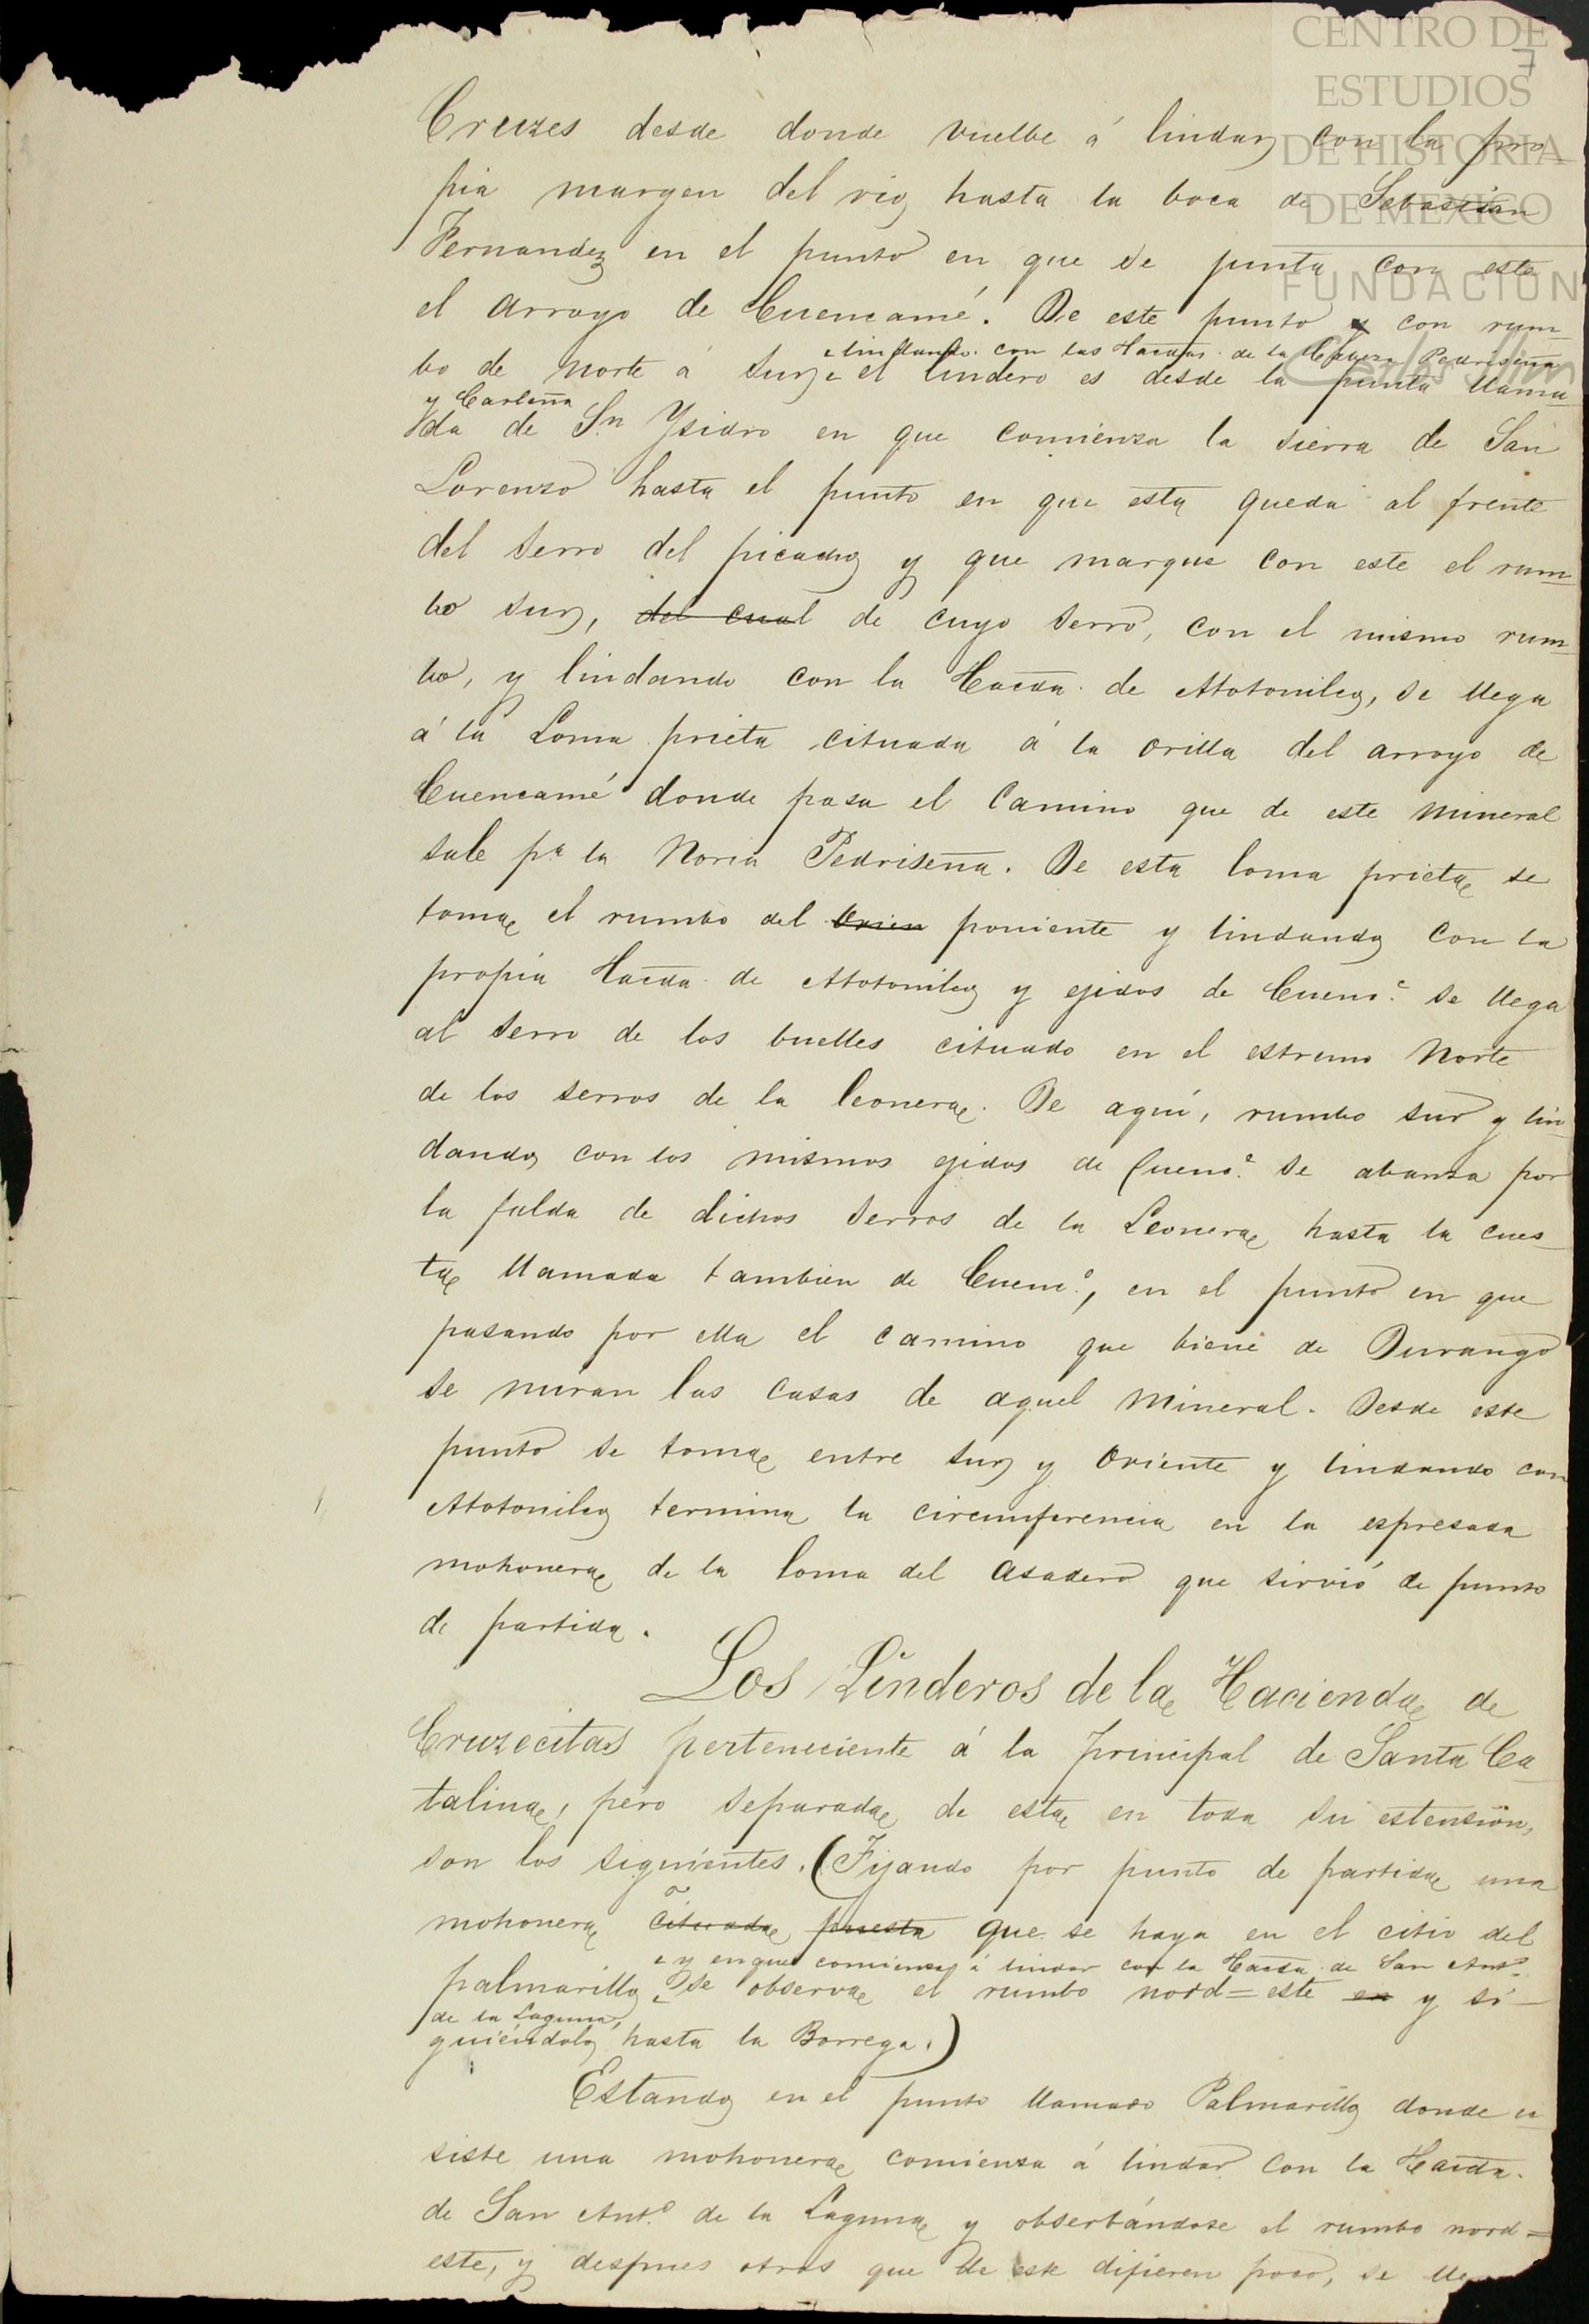 CENTRO DE
ESTUDIOS
DE HISTORIA
DE MÉXICO
FUNDACIÓN
Carlos Slim
7
Cruzes desde donde vuelbe á lindar con la pro
pia margen del rio hasta la boca de Sebastian
Fernandez en el punto en que se junta con este
el arroyo de Cuencamé. De este punto y con rum-
lindando con las Haciendas de la Pedriseña
bo de norte á sur el lindero es desde la punta llama-
y Carleña
da de Sn Ysidro en que comienza la sierra de San
Lorenzo hasta el punto en que esta queda al frente
del serro del picacho y que marque con este el rum-
bo sur, del cual de cuyo serro, con el mismo rum-
bo, y lindando con la Hacda. de Atotonilco, se llega
á la Loma prieta cituada á la orilla del arroyo de
Cuencamé donde pasa el camino que de este mineral
sale pa la Noria Pedriseña. De esta loma prieta se
toma el rumbo del Orien poniente y lindando con la
propia Hacda. de Atotonilco y ejidos de Cuenc.é se llega
al serro de los buelles cituado en el estremo Norte
de los serros de la leonera. De aquí, rumbo sur y lin-
dando con los mismos ejidos de Cuenc.é se abanza por
la falda de dichos serros de la Leonera hasta la cues-
ta llamada tambien de Cuenc.é, en el punto en que
pasando por ella el camino que biene de Durango
se miran las casas de aquel mineral. Desde este
punto se toma entre sur y oriente y lindando con
Atotonilco termina la circumferencia en la espresada
mohonera de la loma del asadero que sirvió de punto
de partida.
Los Linderos de la Hacienda de
Cruzecitas perteneciente á la principal de Santa Ca-
talina, pero separada de esta en toda su estension,
son los siguientes. (Fijando por punto de partida una
mohonera cituada puesta que se haya en el citio del
y en que comienza á lindar con la Hacda. de San Anto.
palmarillo se observa el rumbo nord=este en y si-
de la Laguna,
guiéndolo hasta la Borrega.)
Estando en el punto llamado Palmarillo donde ec-
siste una mohonera comienza á lindar con la Hacda.
de San Ant.o de la Laguna y obserbándose el rumbo nord=
este, y despues otros que de este difieren poco, se lle